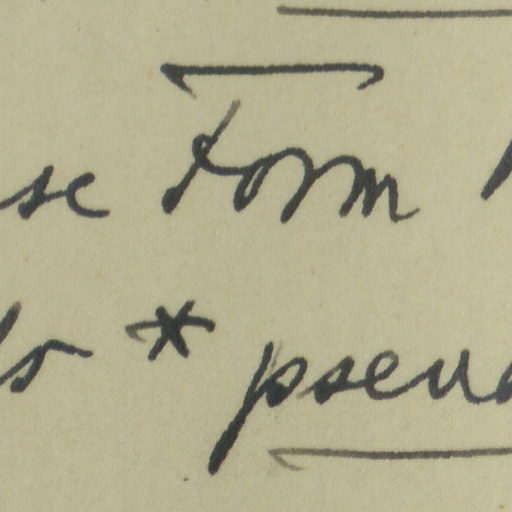 se form
* pseu